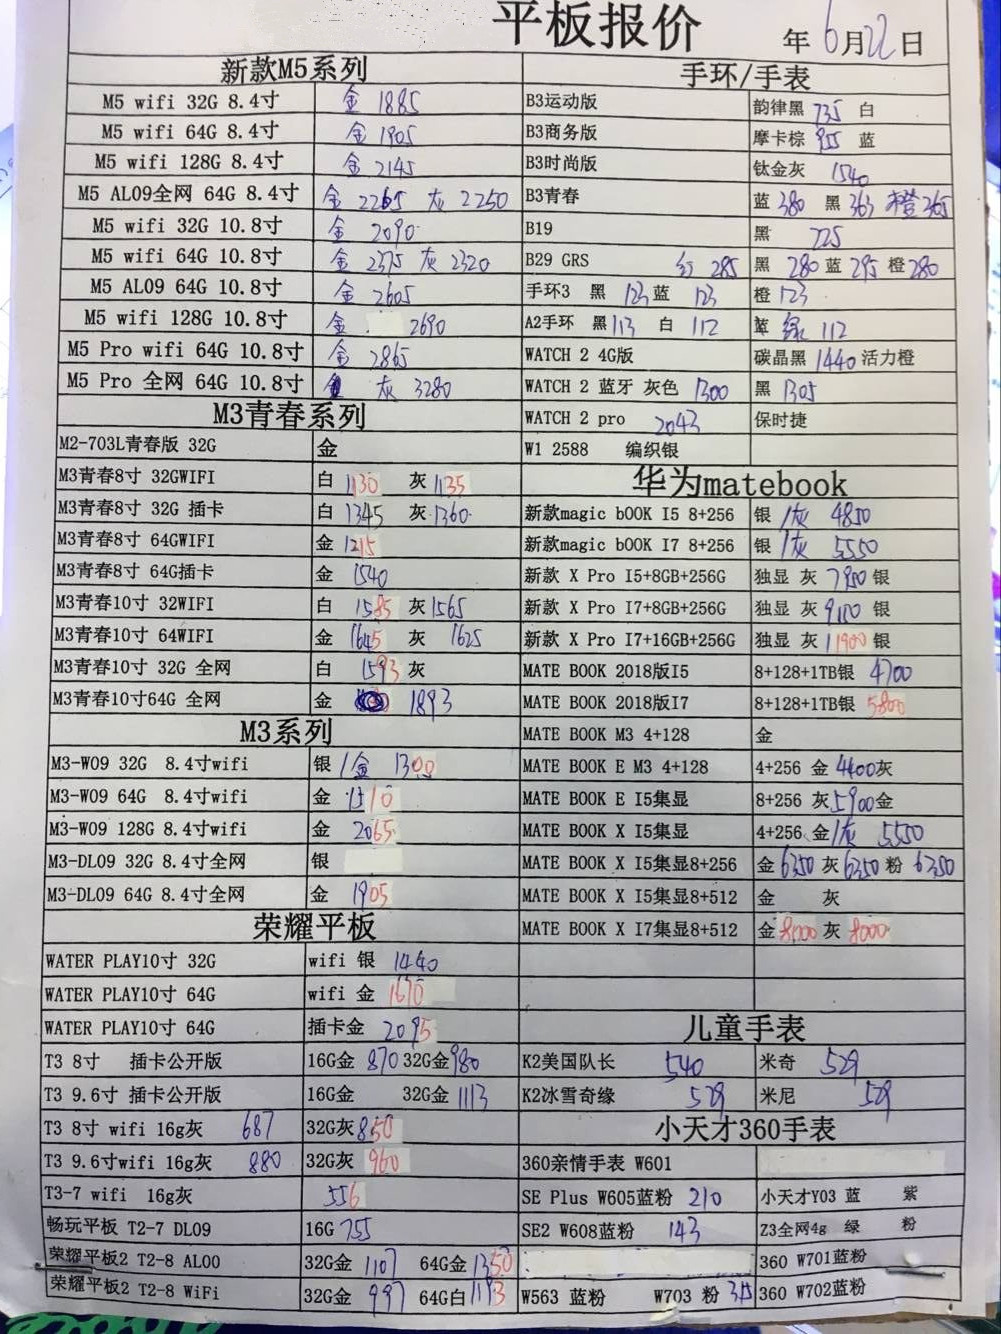 平板报价
年 6月22日
新款M5系列
M5 wifi 32G 8.4寸 金 1885
M5 wifi 64G 8.4寸 金 1905
M5 wifi 128G 8.4寸 金 2145
M5 AL09全网 64G 8.4寸 金 2265 灰 2250
M5 wifi 32G 10.8寸 金 2090
M5 wifi 64G 10.8寸 金 2375 灰 2320
M5 AL09 64G 10.8寸 金 2605
M5 wifi 128G 10.8寸 金 2690
M5 Pro wifi 64G 10.8寸 金 2865
M5 Pro 全网 64G 10.8寸 灰 3280
M3青春系列
M2-703L青春版 32G 金
M3青春8寸 32GWIFI 白 1130 灰 1135
M3青春8寸 32G 插卡 白 1345 灰 1360
M3青春8寸 64GWIFI 金 1215
M3青春8寸 64G插卡 金 1540
M3青春10寸 32WIFI 白 1585 灰 1565
M3青春10寸 64WIFI 金 1645 灰 1625
M3青春10寸 32G 全网 白 1593 灰
M3青春10寸64G 全网 金 1893
M3系列
M3-W09 32G 8.4寸wifi 银 /金 1300
M3-W09 64G 8.4寸wifi 金 1510
M3-W09 128G 8.4寸wifi 金 2065
M3-DL09 32G 8.4寸全网 银
M3-DL09 64G 8.4寸全网 金 1905
荣耀平板
WATER PLAY10寸 32G wifi 银 1440
WATER PLAY10寸 64G wifi 金 1670
WATER PLAY10寸 64G 插卡金 2095
T3 8寸 插卡公开版 16G金 870 32G金 980
T3 9.6寸 插卡公开版 16G金 32G金 1113
T3 8寸 wifi 16g灰 687 32G灰 850
T3 9.6寸wifi 16g灰 880 32G灰 960
T3-7 wifi 16g灰 556
畅玩平板 T2-7 DL09 16G 755
荣耀平板2 T2-8 AL00 32G金 1107 64G金 1350
荣耀平板2 T2-8 WiFi 32G金 997 64G白 1193
手环/手表
B3运动版 韵律黑 735 白
B3商务版 摩卡棕 955 蓝
B3时尚版 钛金灰 1540
B3青春 蓝 380 黑 363 橙 365
B19 黑 725
B29 GRS 红 285 黑 280 蓝 295 橙 280
手环3 黑 123 蓝 123 橙 123
A2手环 黑 113 白 112 绿 112
WATCH 2 4G版 碳晶黑 1440 活力橙
WATCH 2 蓝牙 灰色 1300 黑 1305
WATCH 2 pro 2043 保时捷
W1 2588 编织银
华为matebook
新款magic bOOK I5 8+256 银 /灰 4850
新款magic bOOK I7 8+256 银 /灰 5550
新款 X Pro I5+8GB+256G 独显 灰 7950 银
新款 X Pro I7+8GB+256G 独显 灰 9100 银
新款 X Pro I7+16GB+256G 独显 灰 11900 银
MATE BOOK 2018版I5 8+128+1TB银 4700
MATE BOOK 2018版I7 8+128+1TB银 5800
MATE BOOK M3 4+128 金
MATE BOOK E M3 4+128 4+256 金 4400灰
MATE BOOK E I5集显 8+256 灰5900金
MATE BOOK X I5集显 4+256 金/灰 5550
MATE BOOK X I5集显8+256 金 6350 灰 6350 粉 6350
MATE BOOK X I5集显8+512 金 灰
MATE BOOK X I7集显8+512 金 8000 灰 8000
儿童手表
K2美国队长 540 米奇 529
K2冰雪奇缘 529 米尼 529
小天才360手表
360亲情手表 W601
SE Plus W605蓝粉 210 小天才Y03 蓝 紫
SE2 W608蓝粉 143 Z3全网4g 绿 粉
360 W701蓝粉
W563 蓝粉 W703 粉 315 360 W702蓝粉